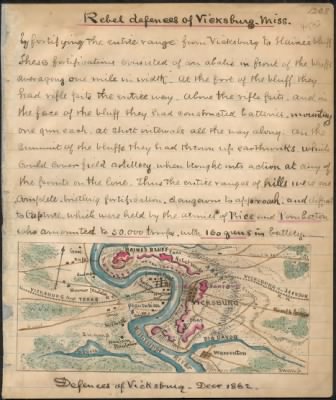 Rebel defences of Vicksburg. Miss.
by fortifying the entire range from Vicksburg to Haines Bluff
These fortifications consisted of an abatis in front of the bluffs
averaging one mile in width. At the foot of the bluff, they
had rifle pits the entire way. Above the rifle pits, and on
the face of the bluff they had constructed batteries, mounting
one gun each, at short intervals all the way along. On the
summit of the bluffs they had thrown up earthworks which
could cover field artillery when brought into action at any of
the points on the line. Thus the entire ranges of hills were one
complete bristling fortification, dangerous to approach, and difficult
to capture, which were held by the armies of Price and Pemberton
who amounted to 50.000 troops, with 160 guns in battery
HAINES BLUFF
VICKSBURG
VICKSBURG AND TEXAS
VICKSBURG & JACKSON
BIG BLACK
Warrenton
Defences of Vicksburg. Decr 1862.